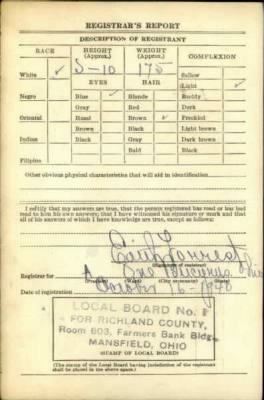 REGISTRAR'S REPORT
DESCRIPTION OF REGISTRANT
RACE HEIGHT (Approx.) WEIGHT (Approx.) COMPLEXION
White ✓ 5-10 175 Sallow
EYES HAIR Light ✓
Negro Blue ✓ Blonde Ruddy
Gray Red Dark
Oriental Hazel Brown ✓ Freckled
Brown Black Light brown
Indian Black Gray Dark brown
Bald Black
Filipino
Other obvious physical characteristics that will aid in identification
I certify that my answers are true, that the person registered has read or has had
read to him his own answers; that I have witnessed his signature or mark and that
all of his answers of which I have knowledge are true, except as follows:
Forrest
(Signature of registrar)
Registrar for Bucyrus Ohio
(Precinct) (Ward) (City or county) (State)
Date of registration October 16-1940
LOCAL BOARD No. 1
FOR RICHLAND COUNTY,
Room 603, Farmers Bank Bldg.
MANSFIELD, OHIO
(STAMP OF LOCAL BOARD)
(The stamp of the Local Board having jurisdiction of the registrant
shall be placed in the above space.)